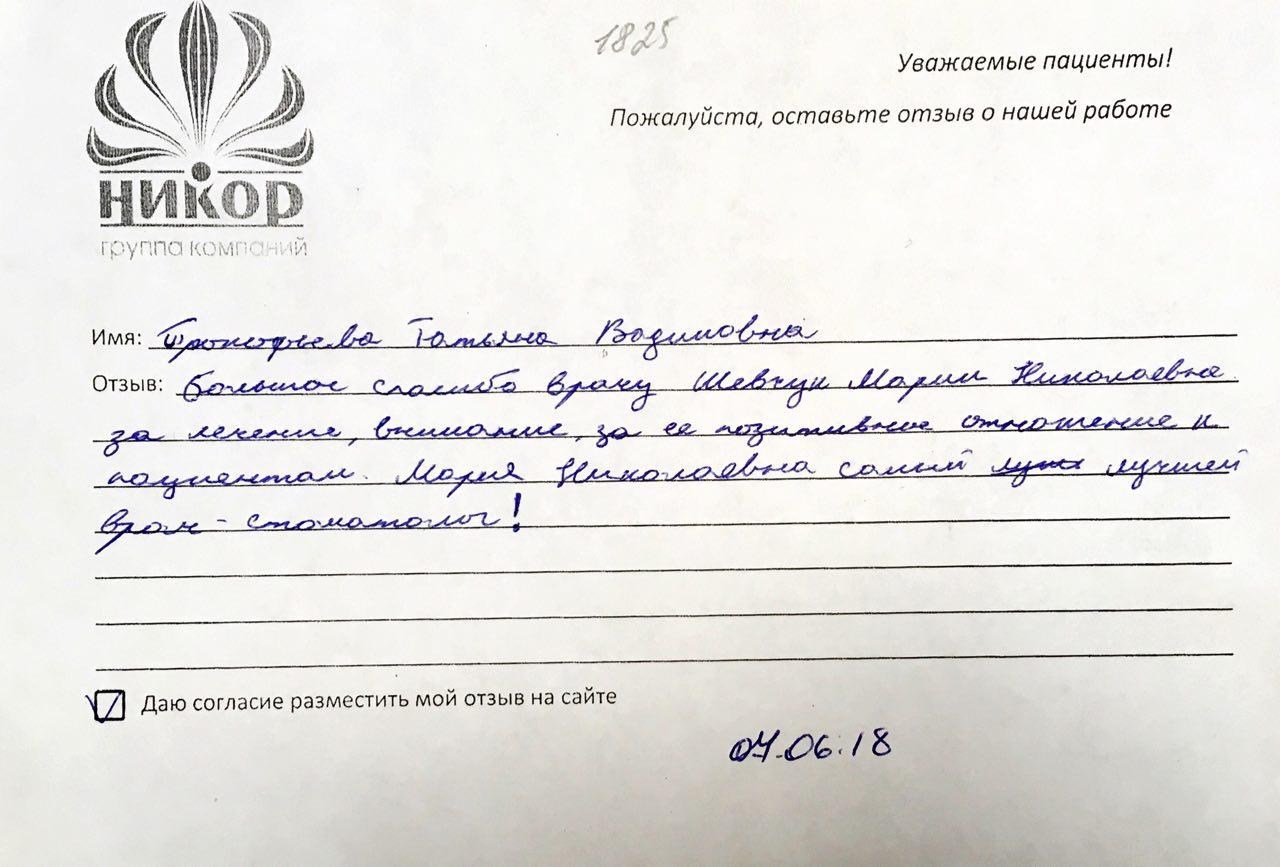 1825
Уважаемые пациенты!
Пожалуйста, оставьте отзыв о нашей работе
НИКОР
группа компаний
Имя: Прокофьева Татьяна Вадимовна
Отзыв: большое спасибо врачу Шевчук Марии Николаевне
за лечение, внимание, за ее позитивное отношение к
пациентам. Мария Николаевна самый лучшей
врач - стоматолог!
Даю согласие разместить мой отзыв на сайте
07.06.18